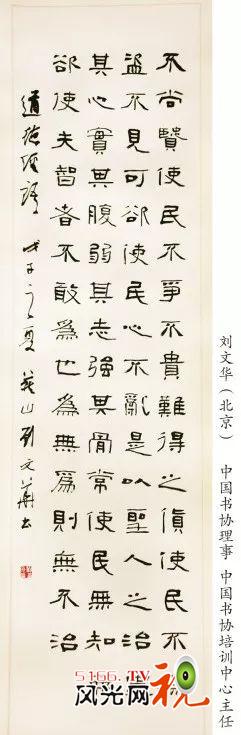 不尚賢使民不爭不貴難得之貨使民不
盜不見可欲使民心不亂是以聖人之治
其心實其腹弱其志強其骨常使民無知
欲使夫智者不敢爲也爲無爲則無不治
道德經語 戊子之夏 燕山劉文華書
刘文华（北京） 中国书协理事 中国书协培训中心主任
5166.TV
风光网视